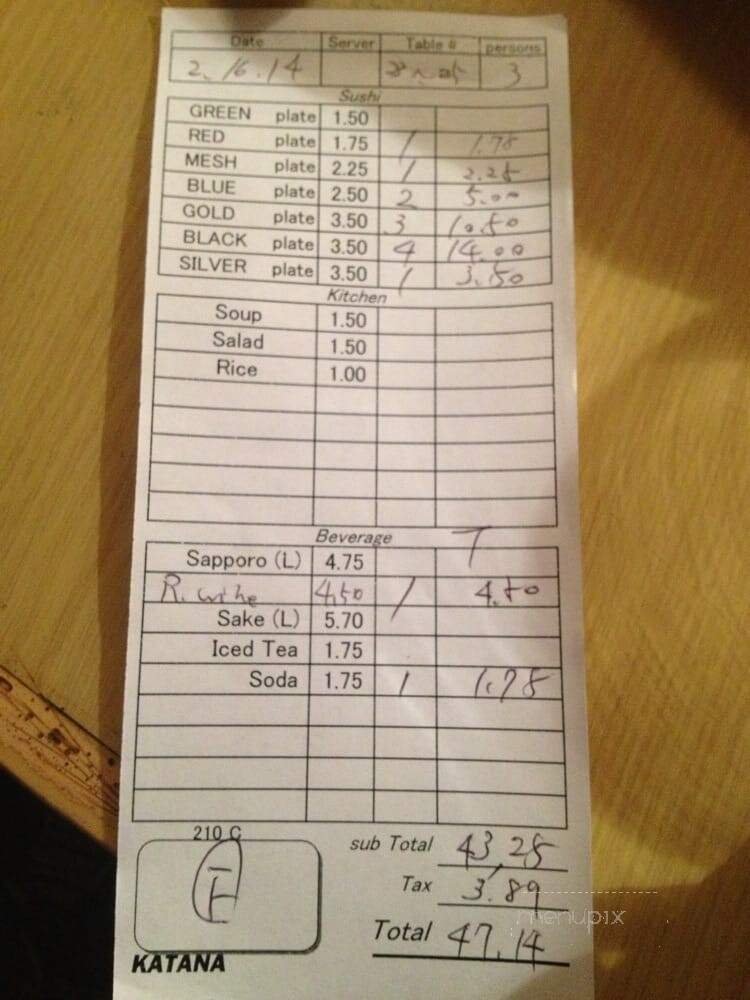 Date Server Table # persons
2.16.14 3
Sushi
GREEN plate 1.50
RED plate 1.75 1 1.75
MESH plate 2.25 1 2.25
BLUE plate 2.50 2 5.00
GOLD plate 3.50 3 10.50
BLACK plate 3.50 4 14.00
SILVER plate 3.50 1 3.50
Kitchen
Soup 1.50
Salad 1.50
Rice 1.00
Beverage
Sapporo (L) 4.75
R. wine 4.50 1 4.50
Sake (L) 5.70
Iced Tea 1.75
Soda 1.75 1 1.75
210 C
sub Total 43.25
Tax 3.89
Total 47.14
KATANA
menupix